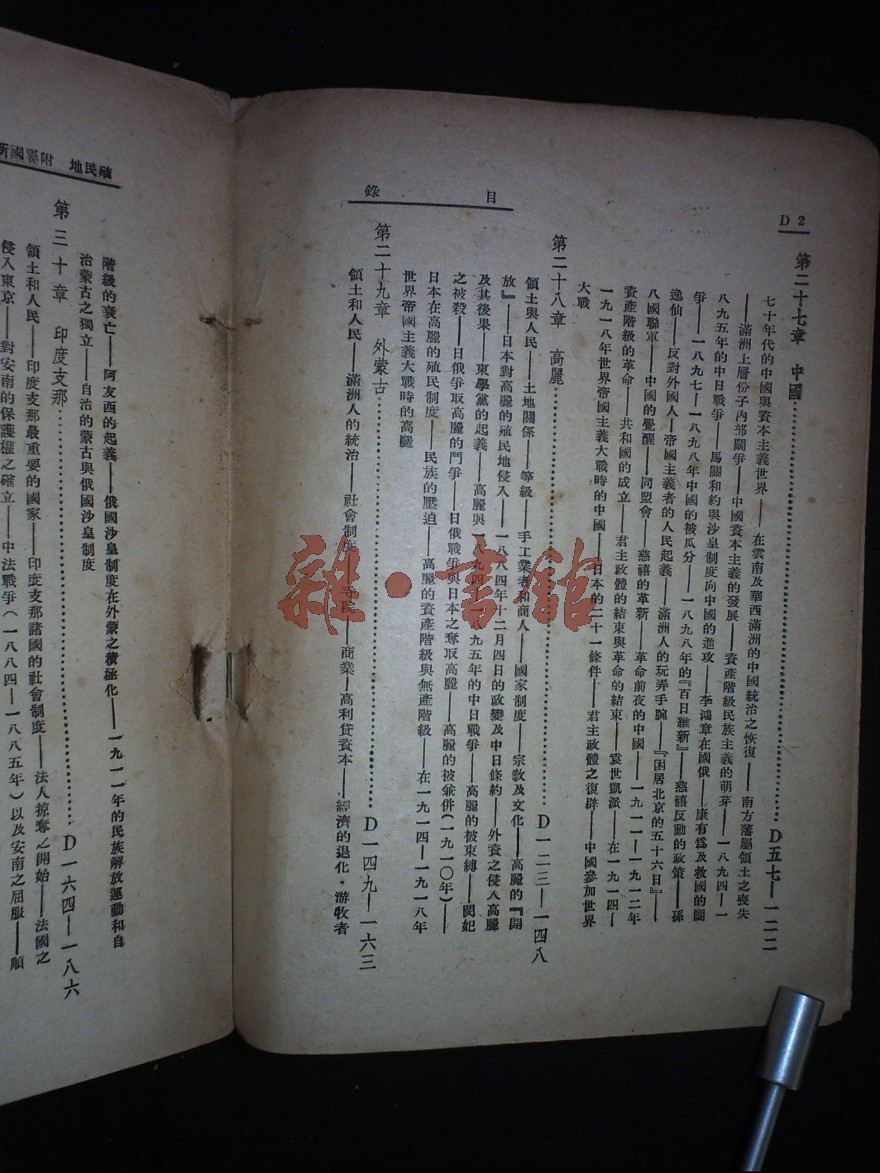 D 2
目錄
第二十七章 中國⋯⋯⋯⋯D五七—一二二
七十年代的中國與資本主義世界——在雲南及華西滿洲的中國統治之恢復——南方藩屬領土之喪失
——滿洲上層份子內部鬬爭——中國資本主義的發展——資產階級民族主義的萌芽——一八九四—一
八九五年的中日戰爭——馬關和約與沙皇制度向中國的進攻——李鴻章在國俄——康有爲及救國的鬬
爭——一八九七—一八九八年中國的被瓜分——一八九八年的『百日維新』——慈禧反動的政策——孫
逸仙——反對外國人—帝國主義者的人民起義——滿洲人的玩弄手腕——『困居北京的五十六日』——
八國聯軍——中國的覺醒——同盟會——慈禧的革新——革命前夜的中國——一九一一—一九一二年
資產階級的革命——共和國的成立——君主政體的結束與革命的結束——袁世凱派——在一九一四—
一九一八年世界帝國主義大戰時的中國——日本的二十一條件——君主政體之復辟——中國參加世界
大戰
第二十八章 高麗⋯⋯⋯⋯D一二三—一四八
領土與人民——土地關係——等級——手工業者和商人——國家制度——宗敎及文化——高麗的『開
放』——日本對高麗的殖民地侵入——一八八四年十二月四日的政變及中日條約——外資之侵入高麗
及其後果——東學黨的起義——高麗與一八九四—一八九五年的中日戰爭——高麗的被束縛——閔妃
之被殺——日俄爭取高麗的鬥爭——日俄戰爭與日本之奪取高麗——高麗的被兼併（一九一〇年）——
日本在高麗的殖民制度——民族的壓迫——高麗的資產階級與無產階級——在一九一四—一九一八年
世界帝國主義大戰時的高麗
第二十九章 外蒙古⋯⋯⋯⋯D一四九—一六三
領土和人民——滿洲人的統治——社會制度——寺院——商業—高利貸資本——經濟的退化・游牧者
殖民地 附屬國新
階級的衰亡——阿友西的起義——俄國沙皇制度在外蒙之積極化——一九一一年的民族解放運動和自
治蒙古之獨立——自治的蒙古與俄國沙皇制度
第三十章 印度支那⋯⋯⋯⋯D一六四—一八六
領土和人民——印度支那最重要的國家——印度支那諸國的社會制度——法人掠奪之開始——法國之
侵入東京——對安南的保護權之確立——中法戰爭（一八八四—一八八五年）以及安南之屈服——順
雜・書館